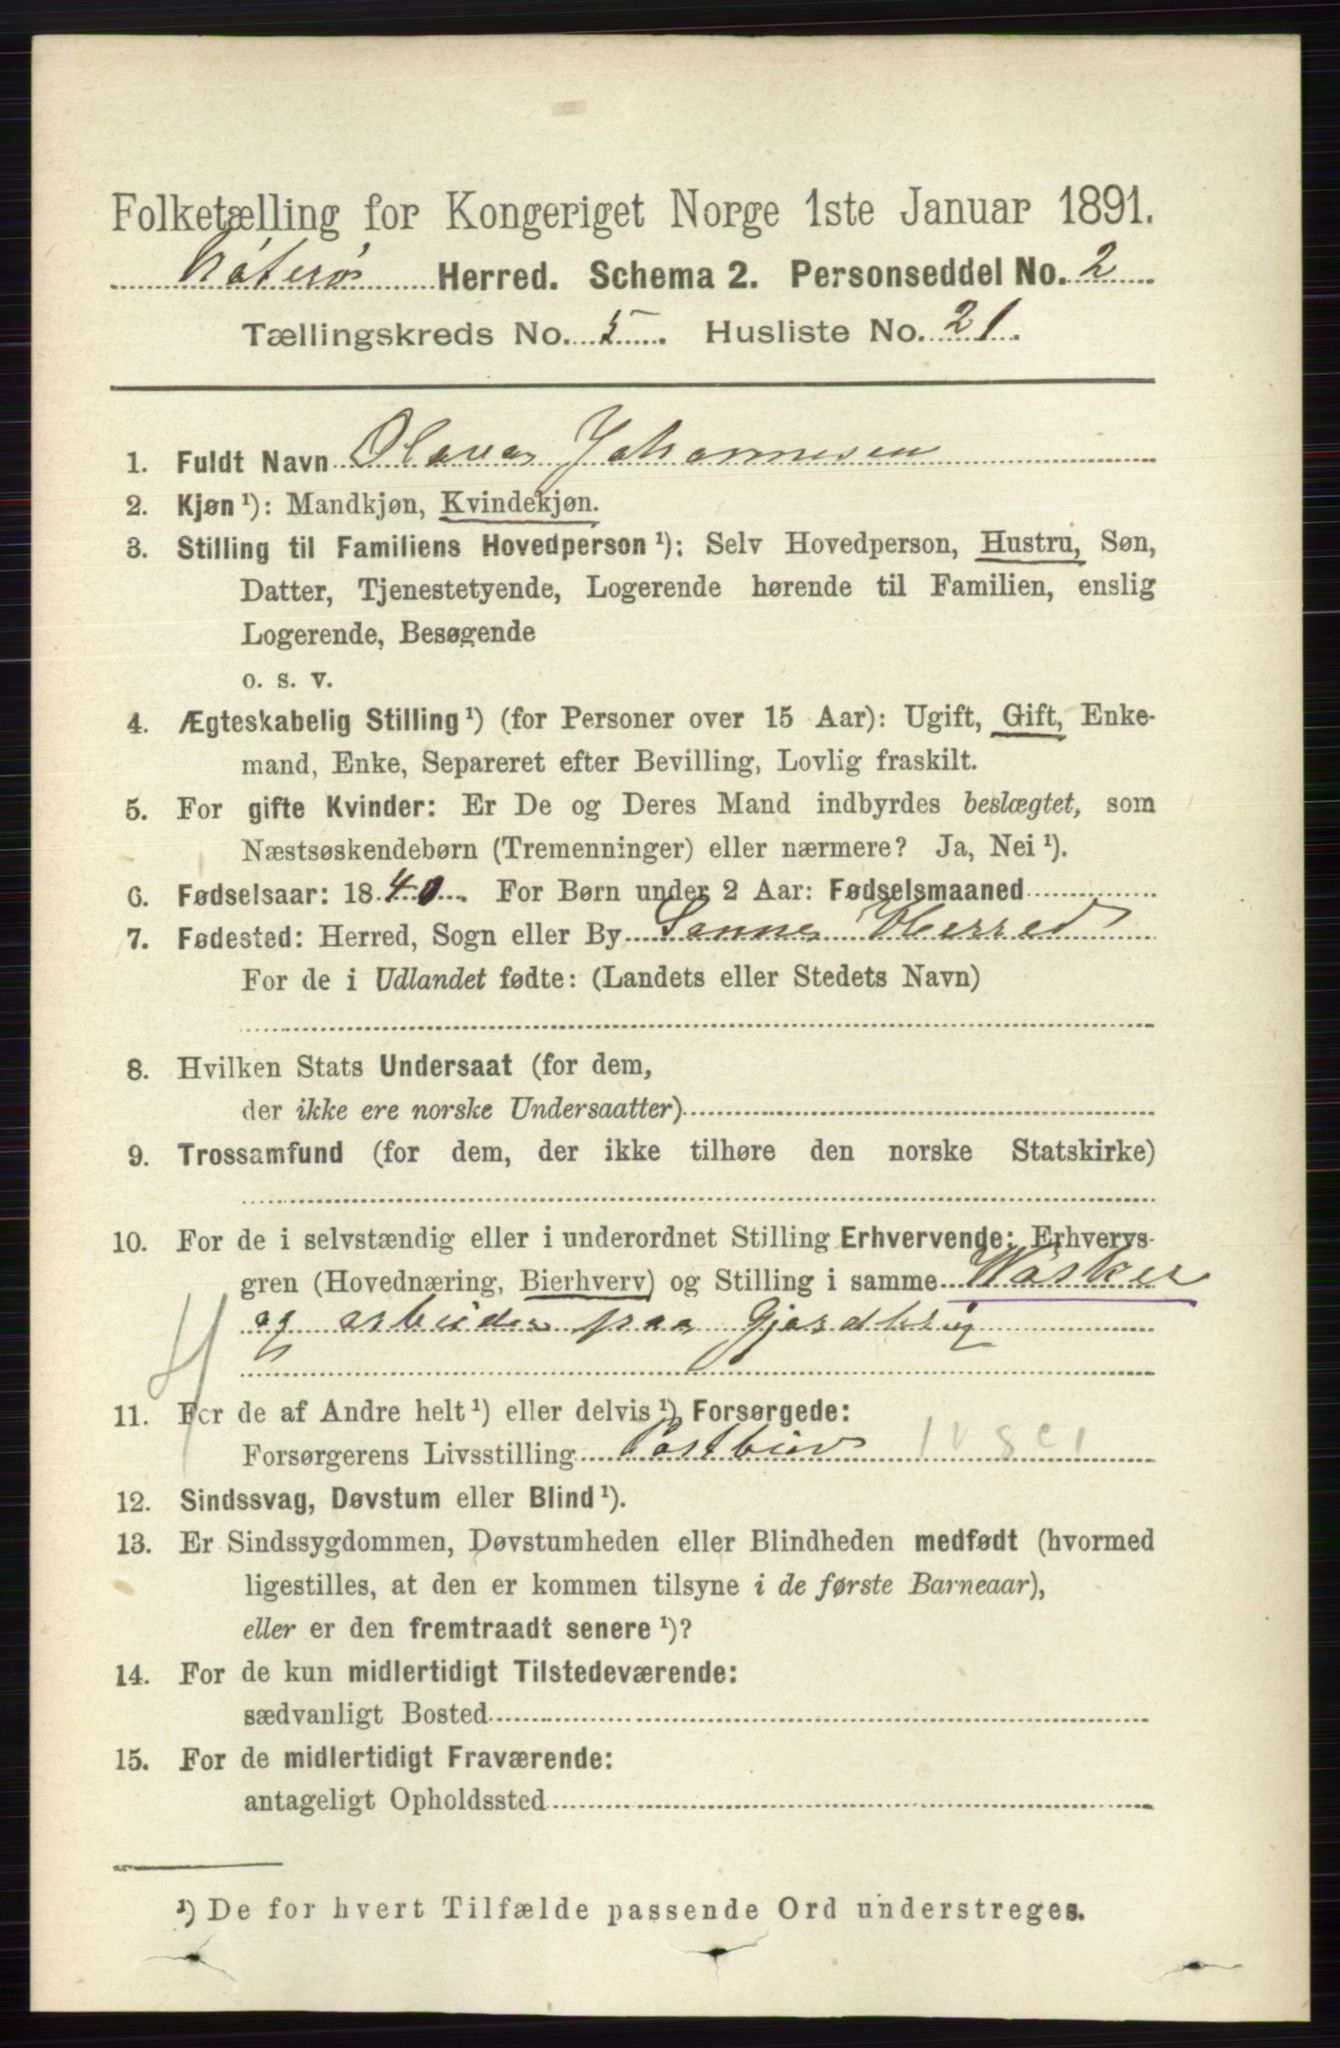 Folketælling for Kongeriget Norge 1ste Januar 1891.
Nøterø Herred. Schema 2. Personseddel No. 2
Tællingskreds No. 5. Husliste No. 21.
1. Fuldt Navn Olava Johannesen
2. Kjøn ¹): Mandkjøn, Kvindekjøn.
3. Stilling til Familiens Hovedperson ¹): Selv Hovedperson, Hustru, Søn,
Datter, Tjenestetyende, Logerende hørende til Familien, enslig
Logerende, Besøgende
o. s. v.
4. Ægteskabelig Stilling ¹) (for Personer over 15 Aar): Ugift, Gift, Enke-
mand, Enke, Separeret efter Bevilling, Lovlig fraskilt.
5. For gifte Kvinder: Er De og Deres Mand indbyrdes beslægtet, som
Næstsøskendebørn (Tremenninger) eller nærmere? Ja, Nei ¹).
6. Fødselsaar: 1840. For Børn under 2 Aar: Fødselsmaaned
7. Fødested: Herred, Sogn eller By Sanne Herred
For de i Udlandet fødte: (Landets eller Stedets Navn)
8. Hvilken Stats Undersaat (for dem,
der ikke ere norske Undersaatter)
9. Trossamfund (for dem, der ikke tilhøre den norske Statskirke)
10. For de i selvstændig eller i underordnet Stilling Erhvervende: Erhvervs-
gren (Hovednæring, Bierhverv) og Stilling i samme Wasker
og arbeider paa Gjordbrug
11. For de af Andre helt ¹) eller delvis ¹) Forsørgede:
Forsørgerens Livsstilling
12. Sindssvag, Døvstum eller Blind ¹).
13. Er Sindssygdommen, Døvstumheden eller Blindheden medfødt (hvormed
ligestilles, at den er kommen tilsyne i de første Barneaar),
eller er den fremtraadt senere ¹)?
14. For de kun midlertidigt Tilstedeværende:
sædvanligt Bosted
15. For de midlertidigt Fraværende:
antageligt Opholdssted
¹) De for hvert Tilfælde passende Ord understreges.